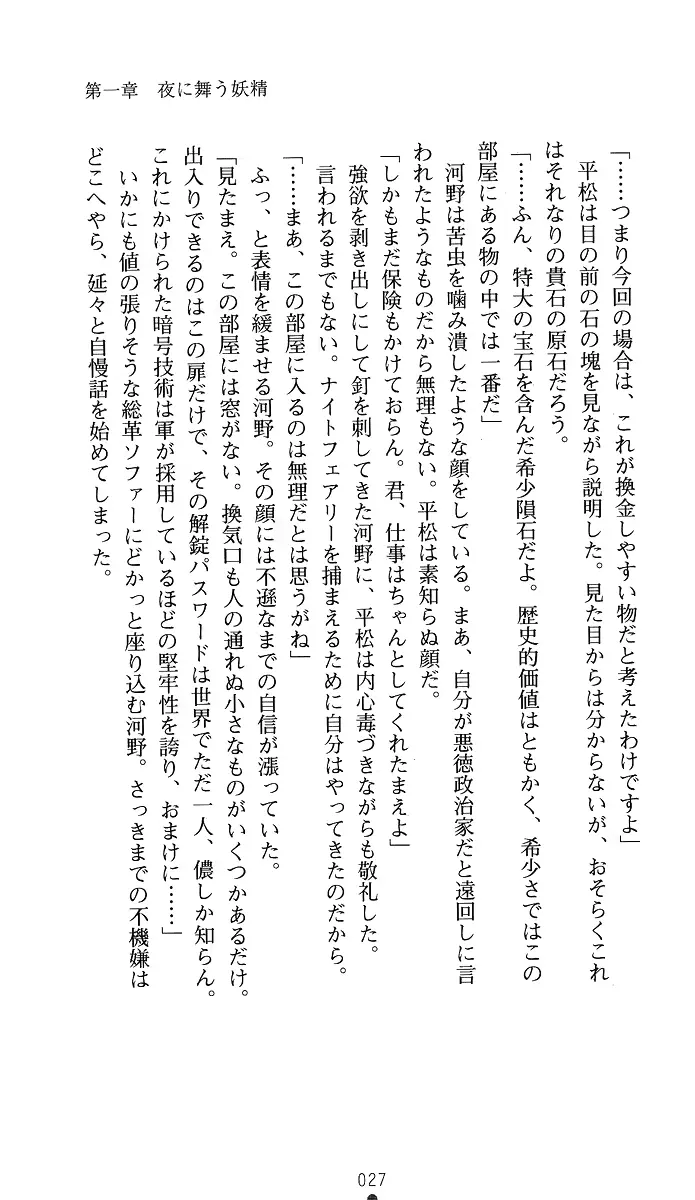 第一章　夜に舞う妖精
「……つまり今回の場合は、これが換金しやすい物だと考えたわけですよ」
　平松は目の前の石の塊を見ながら説明した。見た目からは分からないが、おそらくこれ
はそれなりの貴石の原石だろう。
「……ふん、特大の宝石を含んだ希少隕石だよ。歴史的価値はともかく、希少さではこの
部屋にある物の中では一番だ」
　河野は苦虫を噛み潰したような顔をしている。まあ、自分が悪徳政治家だと遠回しに言
われたようなものだから無理もない。平松は素知らぬ顔だ。
「しかもまだ保険もかけておらん。君、仕事はちゃんとしてくれたまえよ」
　強欲を剥き出しにして釘を刺してきた河野に、平松は内心毒づきながらも敬礼した。
　言われるまでもない。ナイトフェアリーを捕まえるために自分はやってきたのだから。
「……まあ、この部屋に入るのは無理だとは思うがね」
　ふっ、と表情を緩ませる河野。その顔には不遜なまでの自信が漲っていた。
「見たまえ。この部屋には窓がない。換気口も人の通れぬ小さなものがいくつかあるだけ。
出入りできるのはこの扉だけで、その解錠パスワードは世界でただ一人、儂しか知らん。
これにかけられた暗号技術は軍が採用しているほどの堅牢性を誇り、おまけに……」
　いかにも値の張りそうな総革ソファーにどかっと座り込む河野。さっきまでの不機嫌は
どこへやら、延々と自慢話を始めてしまった。
027